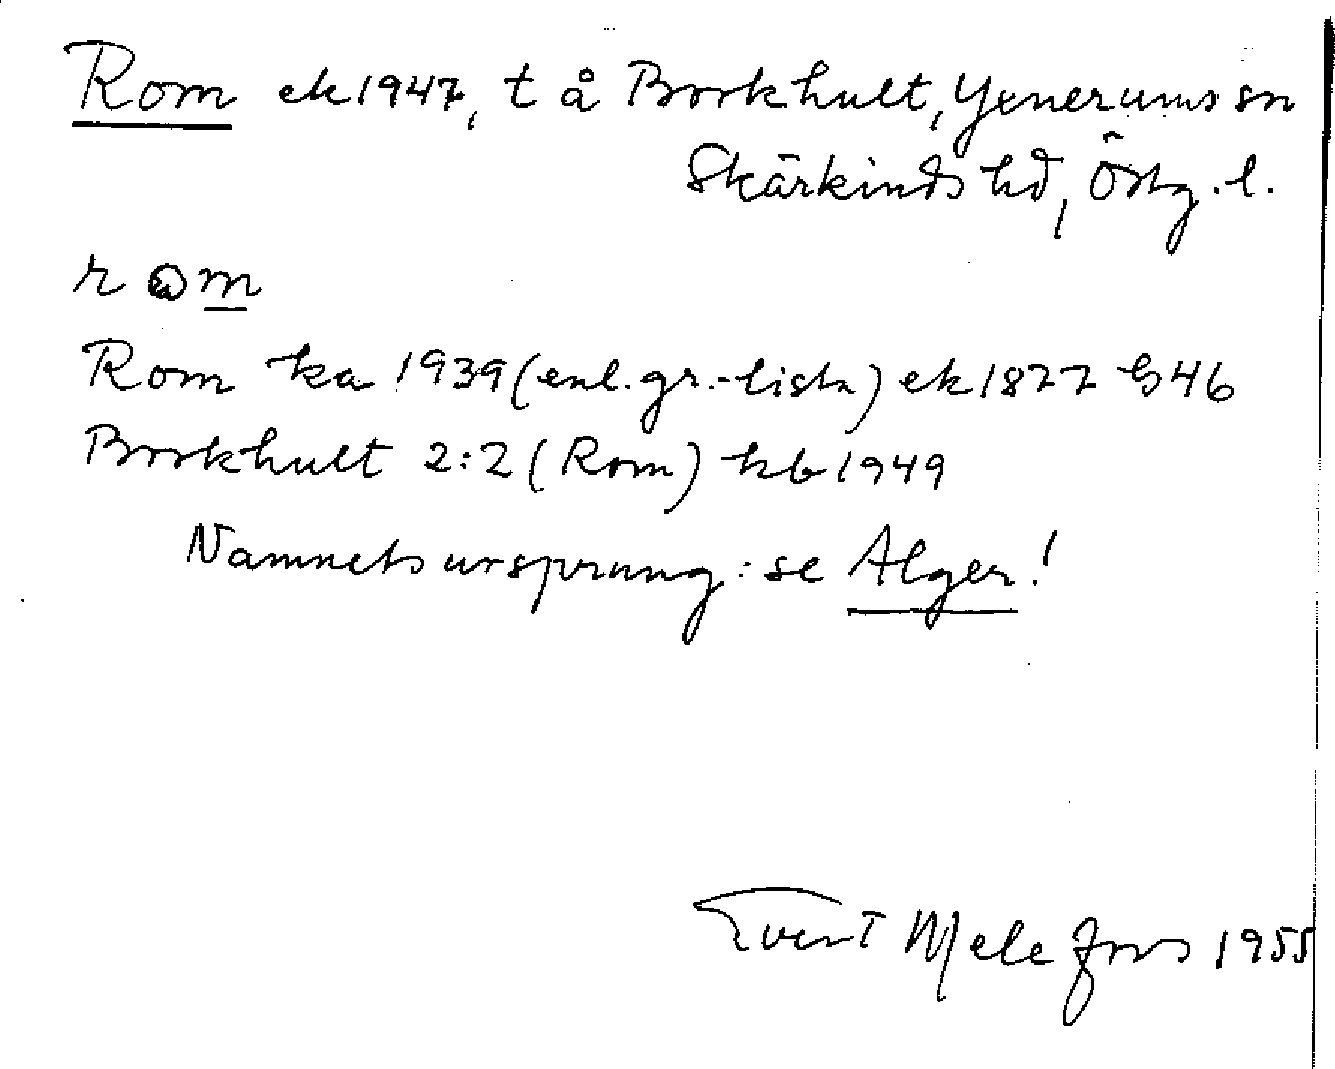 Rom ek 1947, t å Borkhult, Yxnerums sn
Skärkinds hd, Östg. l.
Rom ka 1939 (enl. gr.-lista) ek 1877 b 46
Borkhult 2:2 (Rom) kb 1949
Namnets ursprung: se Alger!
Evert Melefors 1955